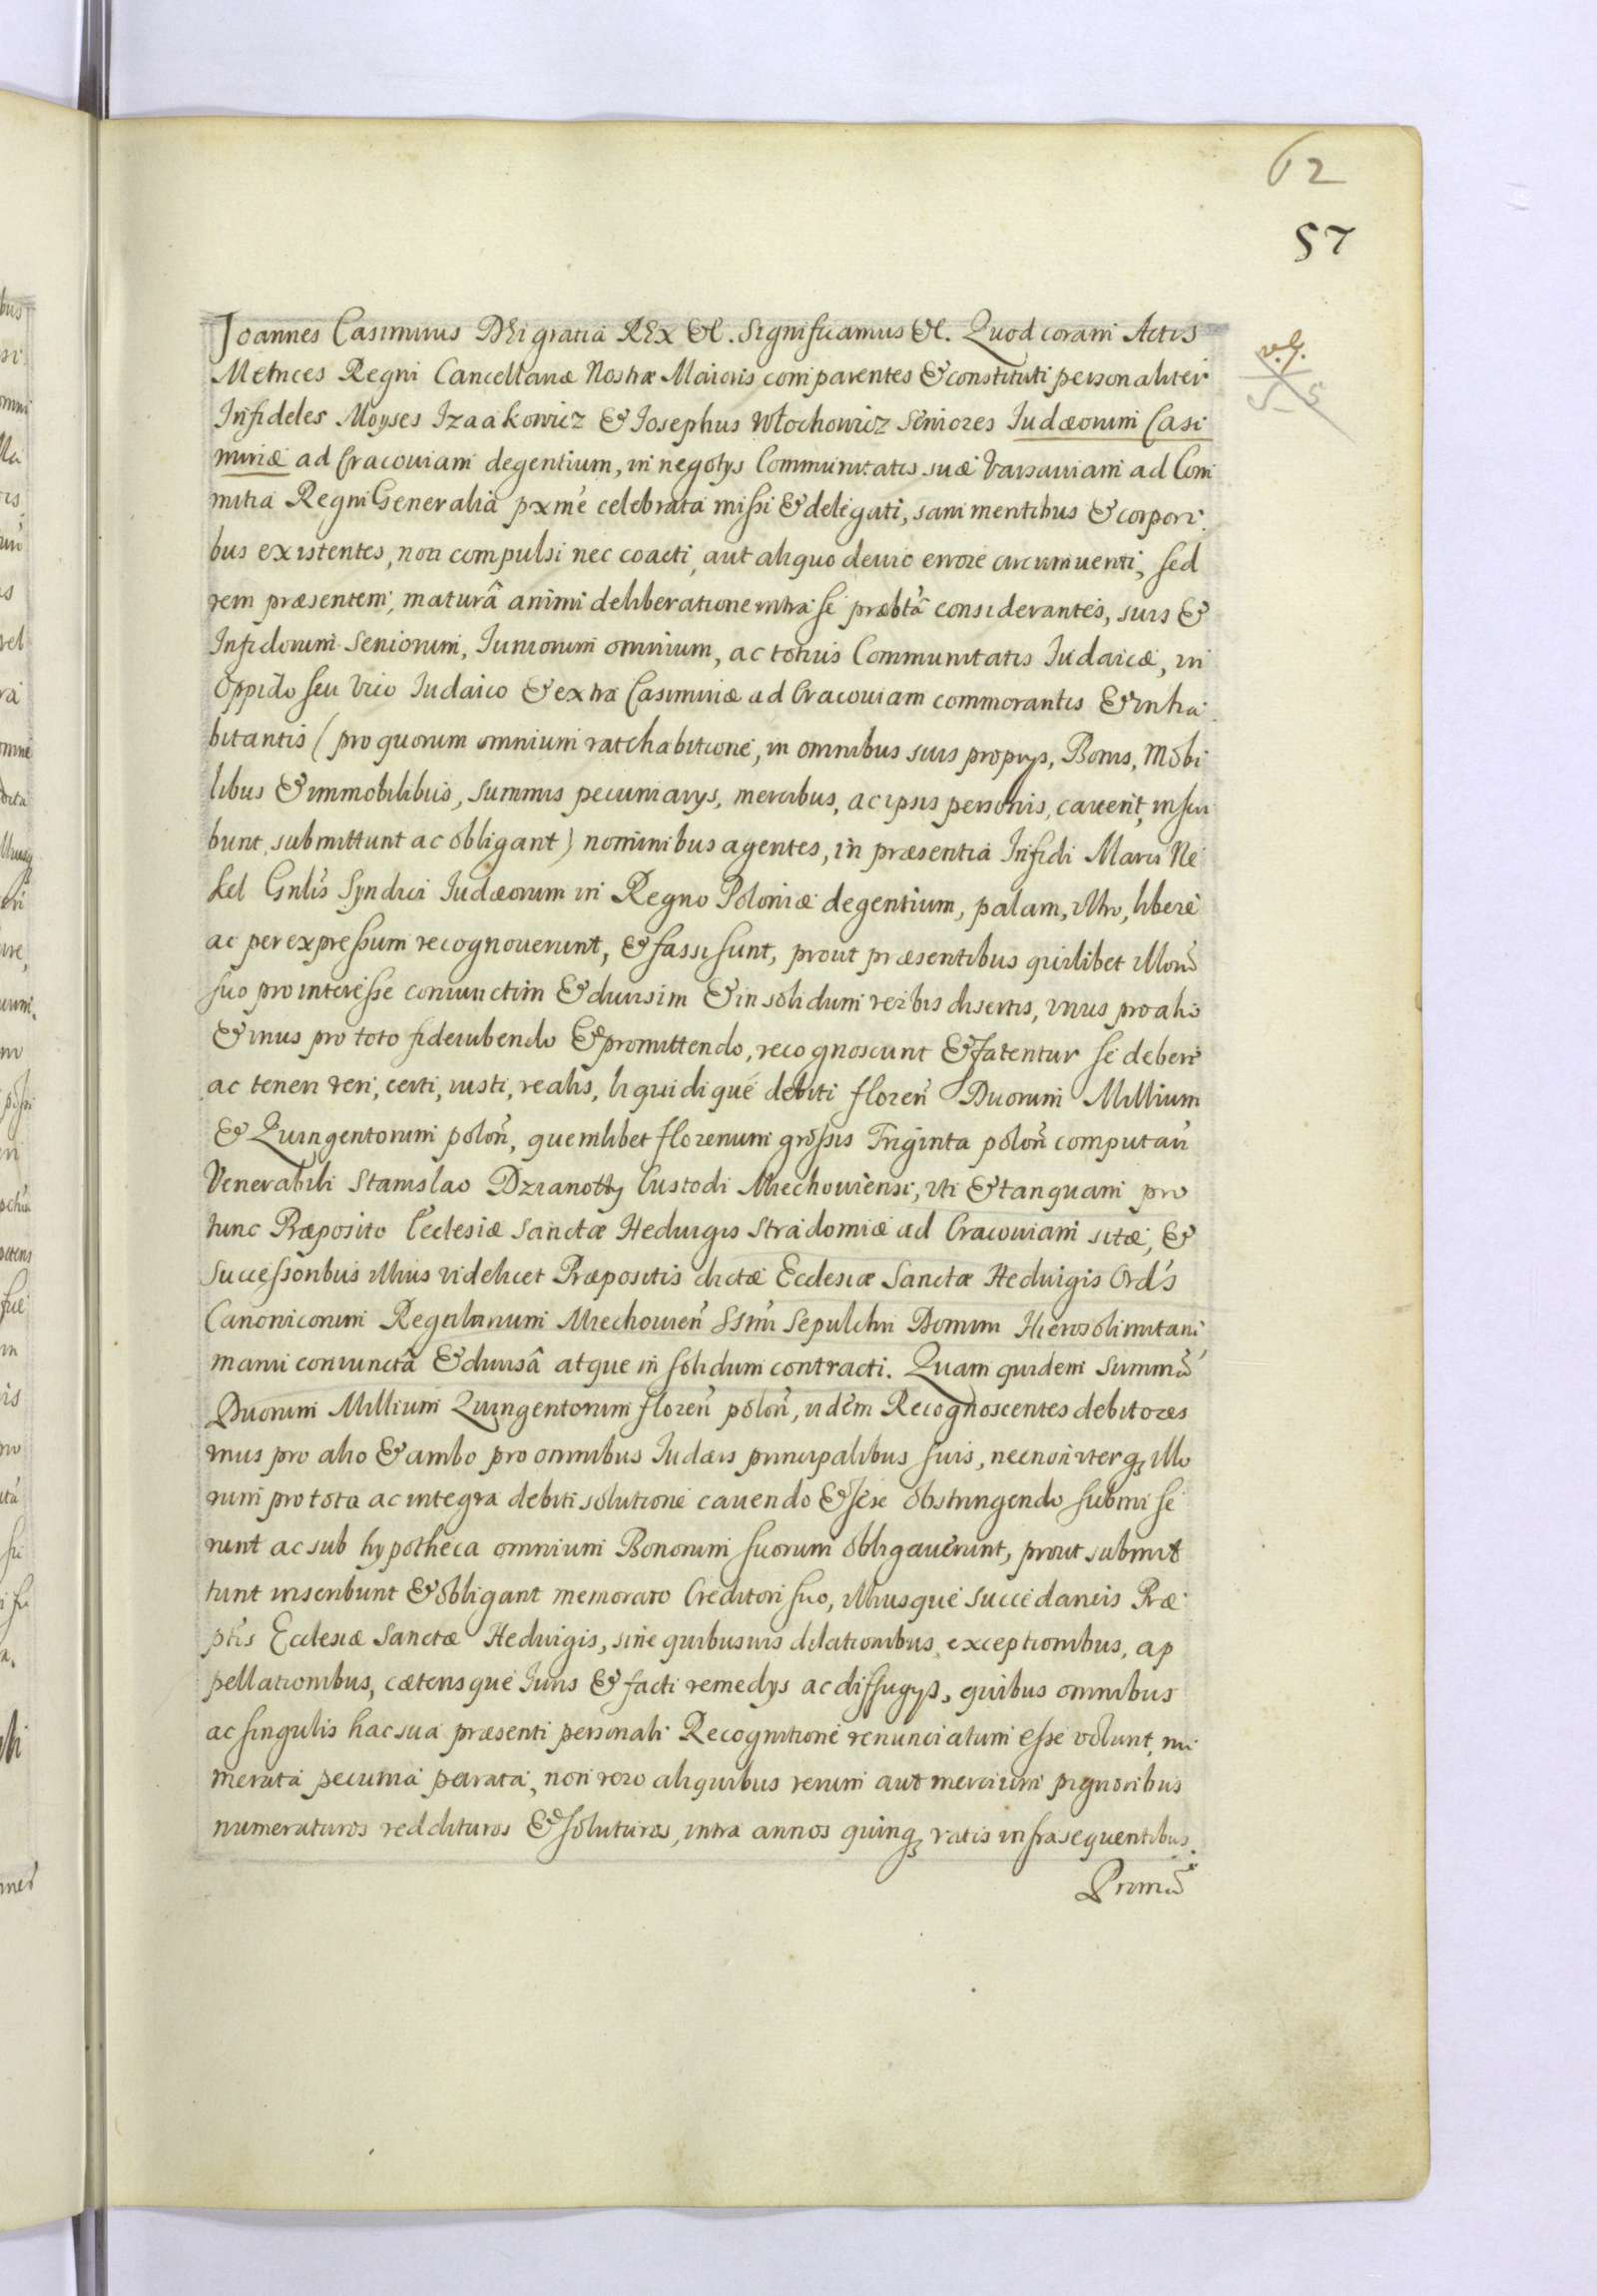 62
57
Joannes Casimirus DEi gratiâ REx &c. Significamus &c. Quod coram Actis
Metrices Regni Cancellariæ Nostræ Maioris comparentes & constituti personaliter
Infideles Moyses Izaakowicz & Iosephus Włochowicz Seniores Iudæorum Casi
miriæ ad Cracoviam degentium, in negotys Communitatis suæ Varsaviam ad Com
mitia Regni Generalia pxmè celebrata missi & delegati, sani mentibus & corpori
bus existentes, non compulsi nec coacti, aut aliquo devio errore circumventi, sed
rem præsentem, maturâ animi deliberatione intra se præhbtâ considerantes, suis &
Infidorum Seniorum, Iuniorum omnium, ac totius Communitatis Iudaicæ, in
Oppido seu Vico Iudaico & extra Casimiriæ ad Cracoviam commorantis & inha
bitantis (pro quorum omnium ratehabitione, in omnibus suis proprys, Bonis, Mobi
libus & immobilibus, summis pecuniarys, mercibus, ac ipsis personis, cavent, inscri
bunt, submittunt ac obligant) nominibus agentes, in præsentia Infidi Marci Ne
kel Gnlis Syndici Iudæorum in Regno Poloniæ degentium, palam, vltro, liberè
ac per expressum recognoverunt, & fassi sunt, prout præsentibus quilibet illorũ
suo pro interesse coniunctim & divisim & in solidum verbis disertis, vnus pro alio
& vnus pro toto fideiubendo & promittendo, recognoscunt & fatentur se debere
ac teneri veri, certi, iusti, realis, liquidique debiti floren̄ Duorum Millium
& Quingentorum polon̄, quemlibet florenum grossis Triginta polon̄ computan̄
Venerabili Stanislao Dzianotty Custodi Miechoviensi, vti & tanquam pro
tunc Præposito Ecclesiæ Sanctæ Hedvigis Stradomiæ ad Cracoviam sitæ, &
Successoribus illius videlicet Præpositis dictæ Ecclesiæ Sanctæ Hedvigis Ord's
Canonicorum Regularium Miechovien̄ SSmi Sepulchri Domini Hierosolimitani
manu coniunctâ & divisâ atque in solidum contracti. Quam quidem Summã
Duorum Millium Quingentorum floren̄ polon̄, iidem Recognoscentes debitores
vnus pro alio & ambo pro omnibus Iudæis principalibus suis, necnon vterq; illo
rum pro tota ac integra debiti solutione cavendo & sese obstringendo submise
runt ac sub hypotheca omnium Bonorum suorum obligaverunt, prout submit
tunt inscribunt & obligant memorato Creditori suo, illiusque succedaneis Præ
ptis Ecclesiæ Sanctæ Hedvigis, sine quibusvis dilationibus, exceptionibus, ap
pellationibus, cæterisque Iuris & facti remedys ac diffugys, quibus omnibus
ac singulis hac sua præsenti personali Recognitione renunciatum esse volunt, nu
merata pecunia parata, non vero aliquibus rerum aut mercium pignoribus
numeraturos reddituros & soluturos, intra annos quinq; ratis infrasequentibus.
Primã